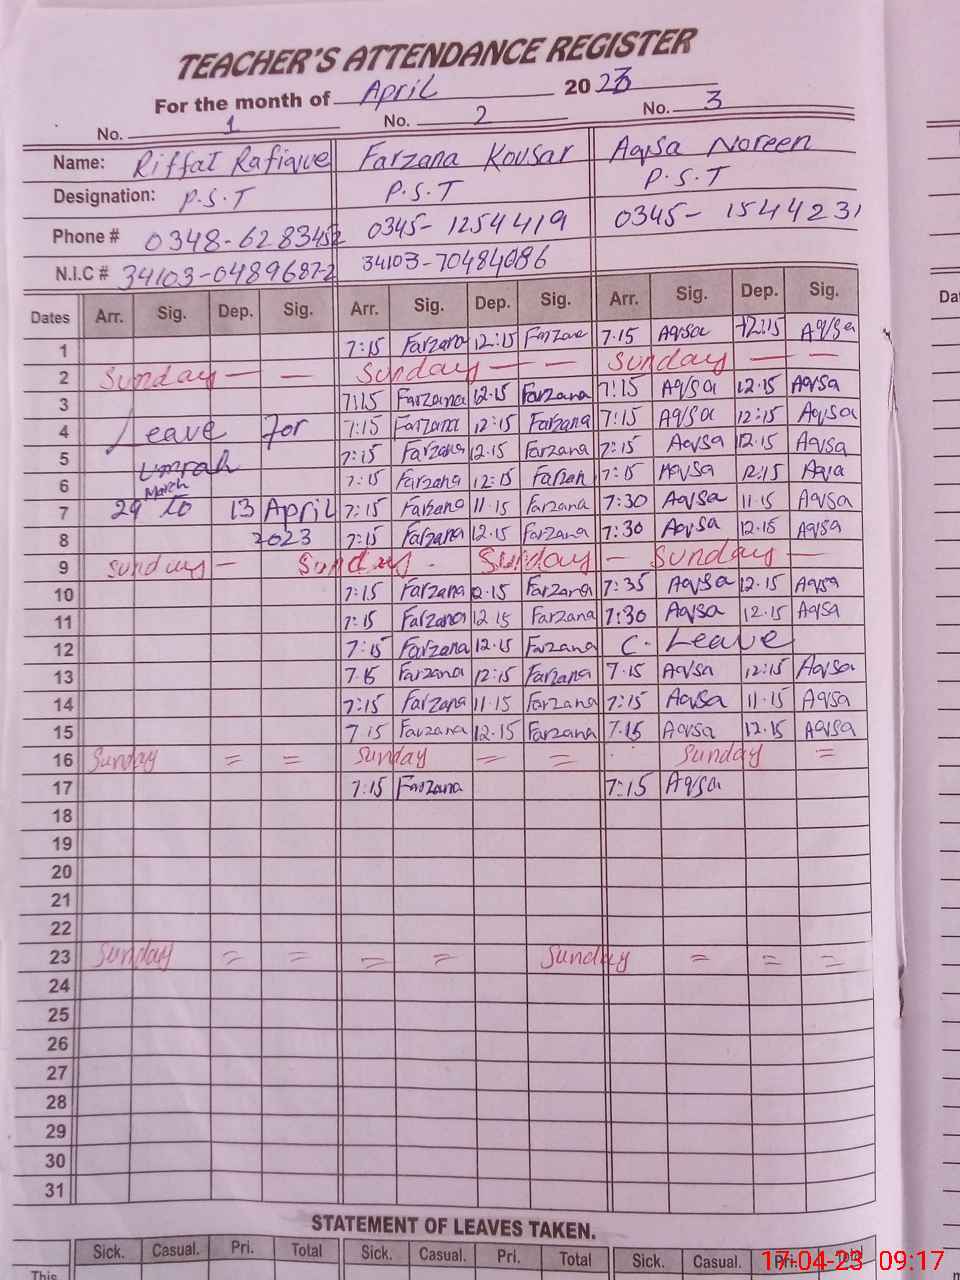 TEACHER'S ATTENDANCE REGISTER
For the month of April 2023
No. 1 No. 2 No. 3
Name: Riffat Rafique Farzana Kousar Aqsa Noreen
Designation: P.S.T P.S.T P.S.T
Phone # 0348-6283452 0345-1254419 0345-1544231
N.I.C # 34103-0489687-2 34103-70484086
Dates Arr. Sig. Dep. Sig. Arr. Sig. Dep. Sig. Arr. Sig. Dep. Sig.
1 7:15 Farzana 12:15 Farzae 7.15 Aqsa 12:15 Aqsa
2 Sunday — — Sunday — — Sunday — —
3 7:15 Farzana 12.15 Farzana 7:15 Aqsa 12.15 Aqsa
4 Leave for 7:15 Farzana 12:15 Farzana 7:15 Aqsa 12:15 Aqsa
5 Umrah 7:15 Farzana 12.15 Farzana 7:15 Aqsa 12.15 Aqsa
6 March 7:15 Farzana 12:15 Farzan 7:15 Aqsa 12:15 Aqa
7 29 to 13 April 7:15 Farzana 11.15 Farzana 7:30 Aqsa 11.15 Aqsa
8 2023 7:15 Farzana 12.15 Farzana 7:30 Aqsa 12.15 Aqsa
9 Sunday — Sunday - Sunday — Sunday —
10 7:15 Farzana 12.15 Farzana 7:35 Aqsa 12.15 Aqsa
11 7:15 Farzana 12.15 Farzana 7:30 Aqsa 12.15 Aqsa
12 7:15 Farzana 12.15 Farzana C. Leave
13 7.15 Farzana 12:15 Farzana 7.15 Aqsa 12:15 Aqsa
14 7:15 Farzana 11.15 Farzana 7:15 Aqsa 11.15 Aqsa
15 7.15 Farzana 12.15 Farzana 7.15 Aqsa 12.15 Aqsa
16 Sunday = = Sunday = = Sunday =
17 7:15 Farzana 7:15 Aqsa
18
19
20
21
22
23 Sunday = = = = Sunday = = =
24
25
26
27
28
29
30
31
STATEMENT OF LEAVES TAKEN.
Sick. Casual. Pri. Total Sick. Casual. Pri. Total Sick. Casual. Pri.
This
Da
17-04-23 09:17